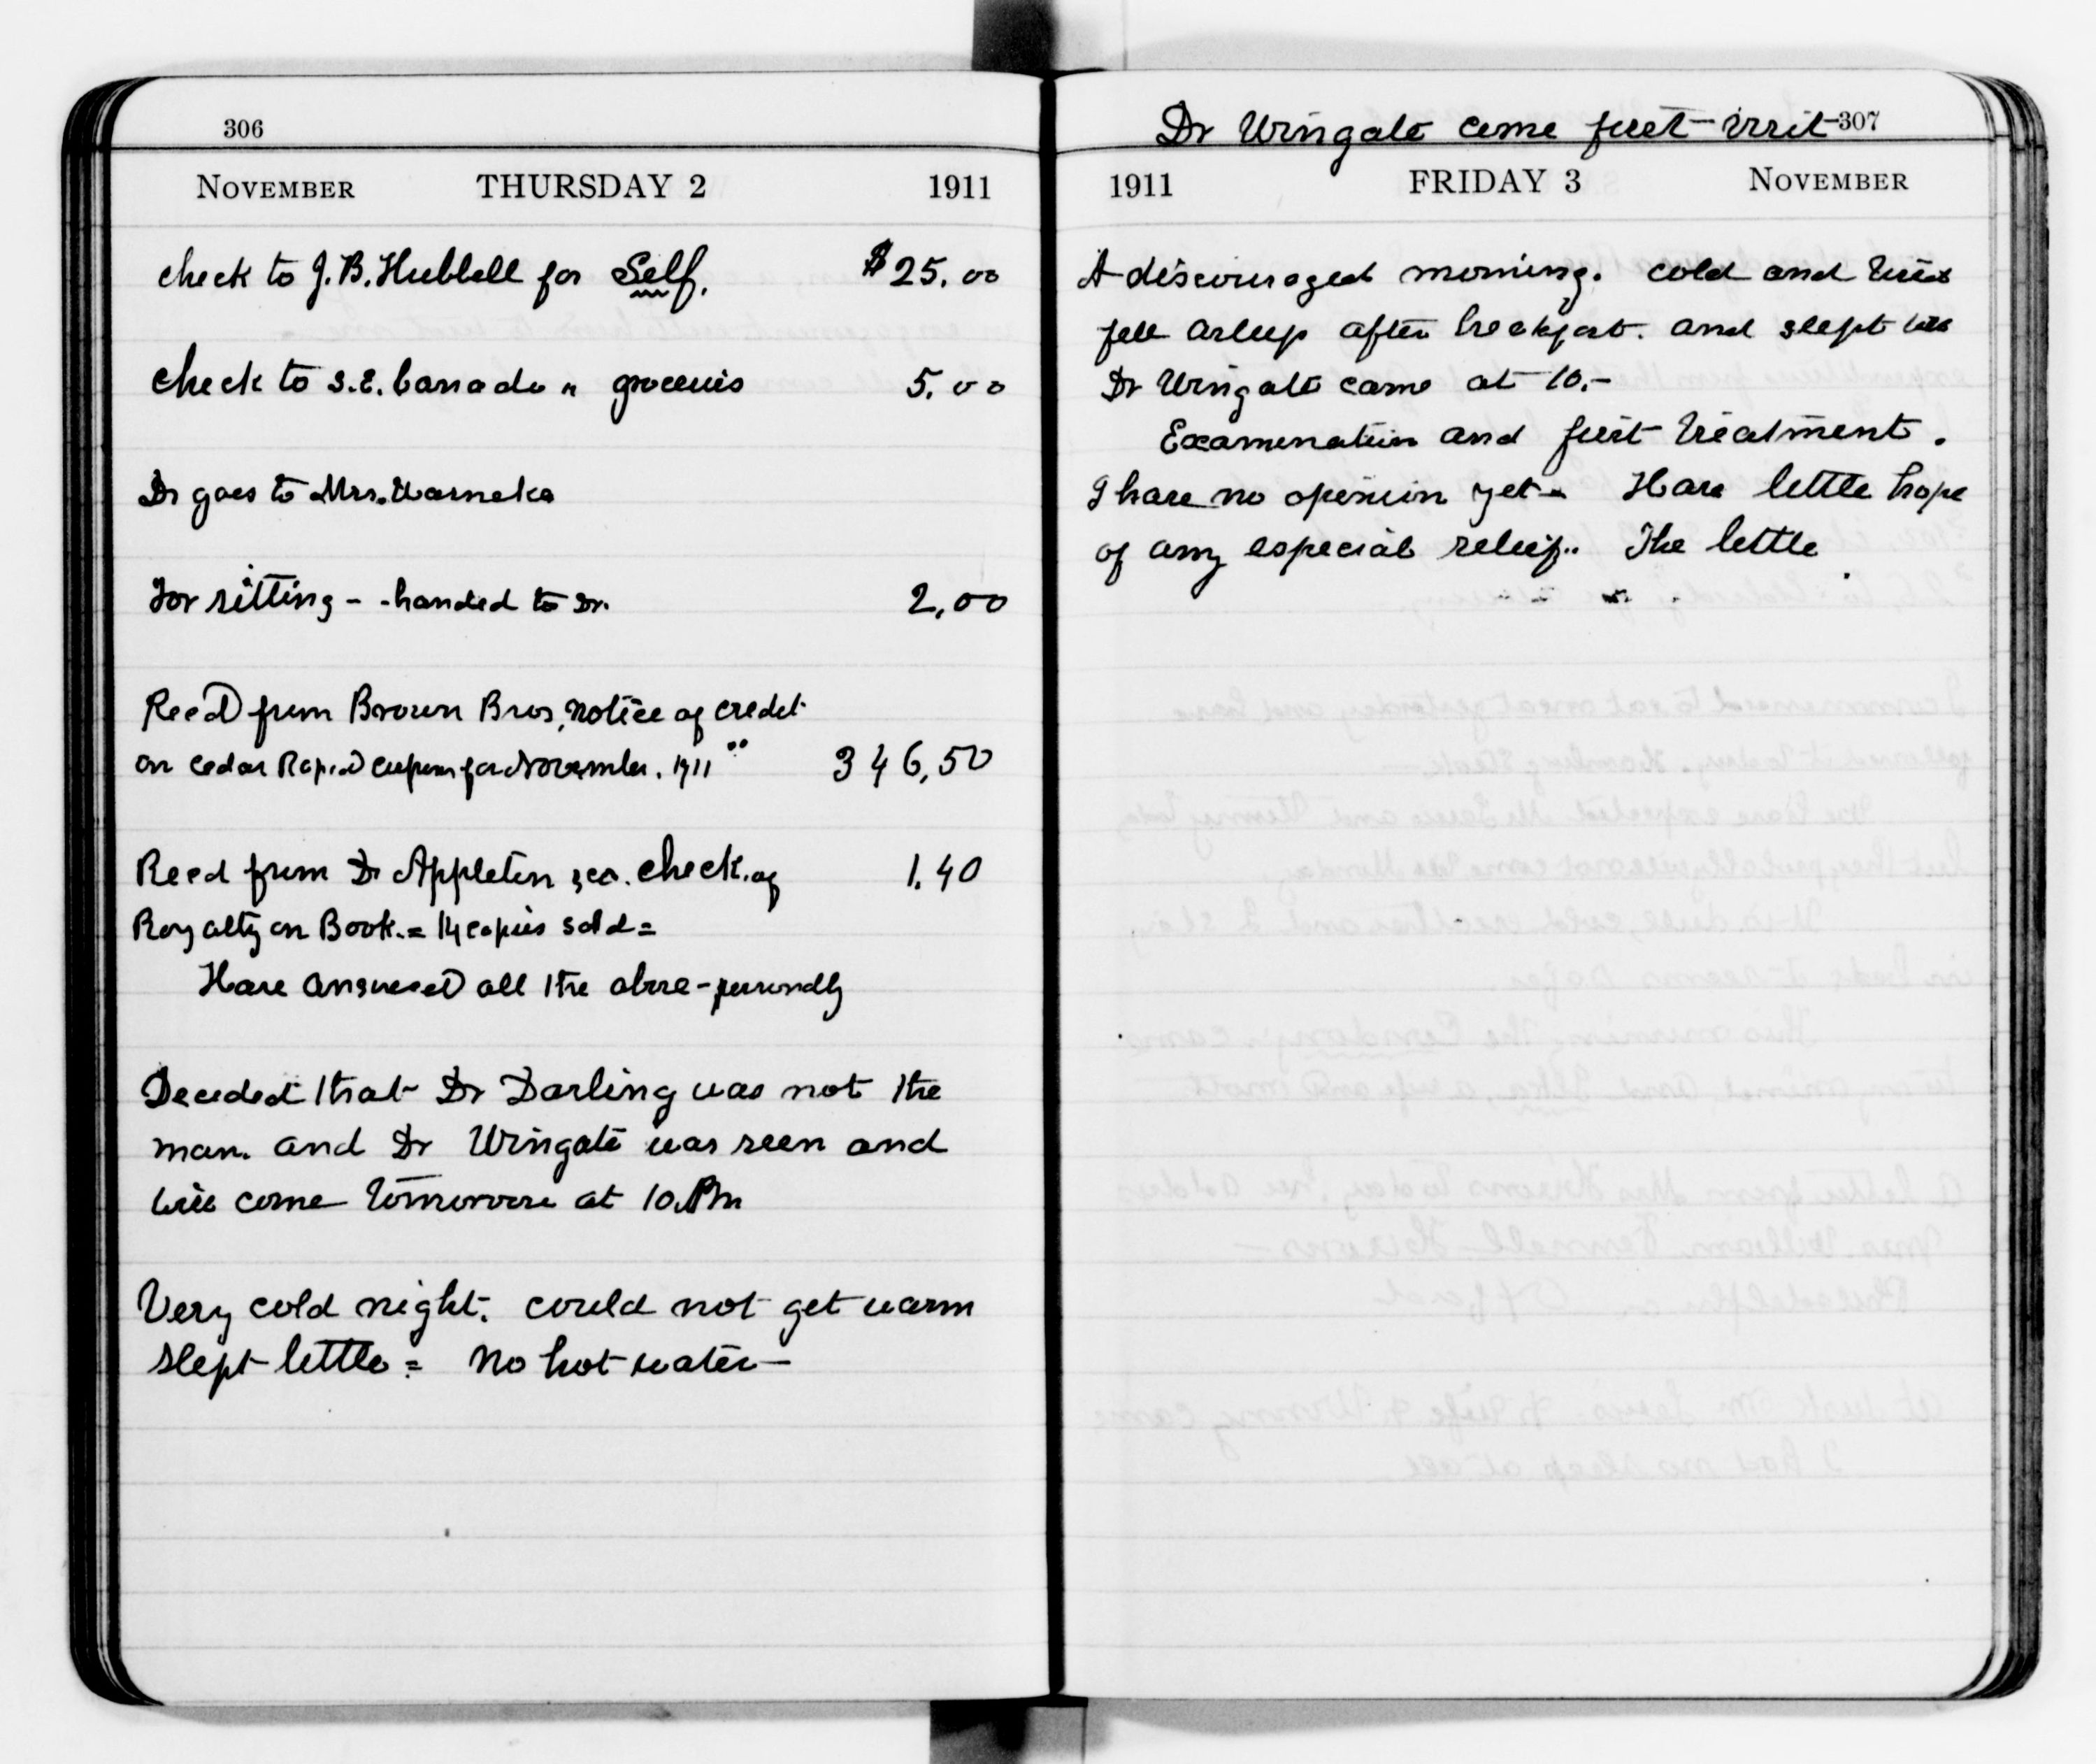 306
NOVEMBER THURSDAY 2 1911
check to J. B. Hubbell for Self. $25.00
check to S. E. Canada " groceries 5.00
Dr goes to Mrs. Warneke
for sitting - - handed to Dr. 2,00
Recd from Brown Bros, notice of credit
on Cedar Rapid coupons for November. 1911 346,50
Recd from D Appleton & co. check. of 1.40
Royalty on Book. = 14 copies sold =
Have answered all the above - personally
Decided that Dr Darling was not the
man. and Dr Wingate was seen and
will come tomorrow at 10. Am
Very cold night. could not get warm
slept little = No hot water -
Dr Wingate come first visit 307
1911 FRIDAY 3 NOVEMBER
A discouraged morning. cold and tired
fell asleep after breakfast. and slept till
Dr Wingate came at 10. -
Examination and first treatment.
I have no opinion yet - Have little hope
of any especial relief. The little